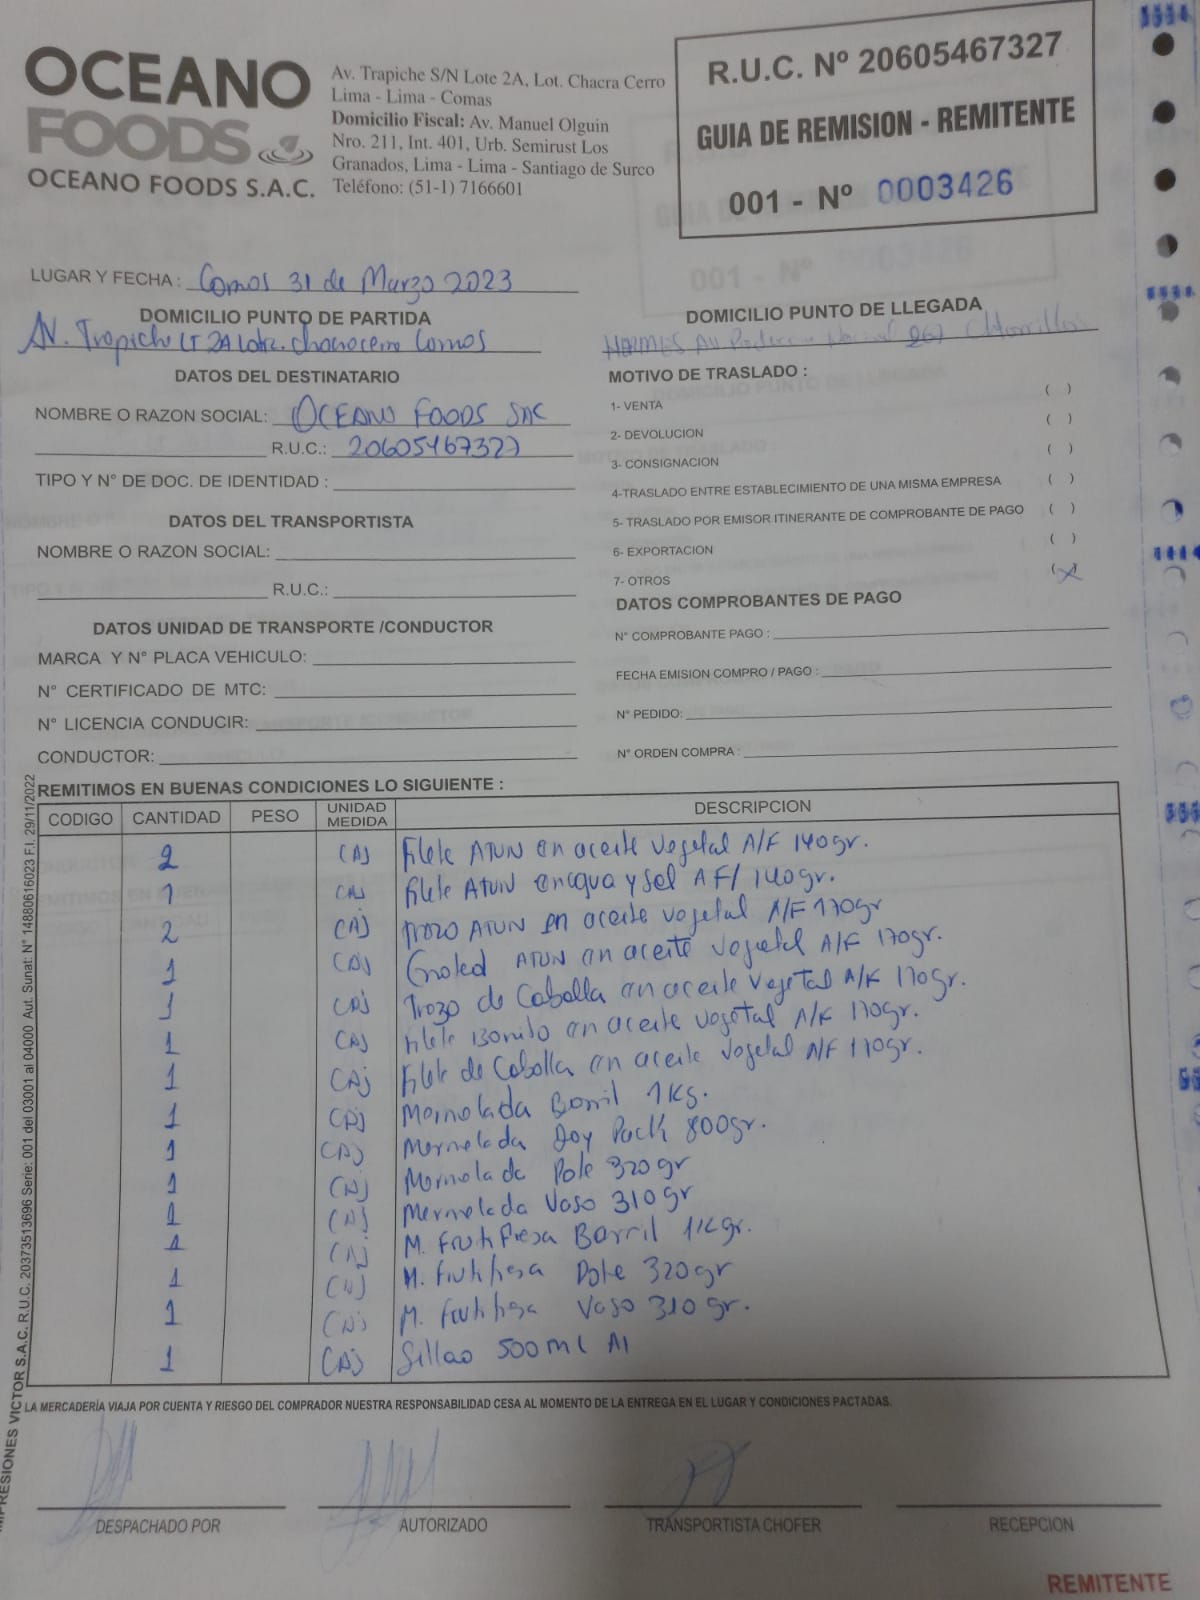 OCEANO
FOODS
OCEANO FOODS S.A.C.
Av. Trapiche S/N Lote 2A, Lot. Chacra Cerro
Lima - Lima - Comas
Domicilio Fiscal: Av. Manuel Olguin
Nro. 211, Int. 401, Urb. Semirust Los
Granados, Lima - Lima - Santiago de Surco
Teléfono: (51-1) 7166601
R.U.C. Nº 20605467327
GUIA DE REMISION - REMITENTE
001 - Nº 0003426
LUGAR Y FECHA : Comas 31 de Marzo 2023
DOMICILIO PUNTO DE PARTIDA
AV. Trapiche LT 2A Lotz. chacracerro Comas
DOMICILIO PUNTO DE LLEGADA
HERMES AV 267
DATOS DEL DESTINATARIO
NOMBRE O RAZON SOCIAL: OCEANO FOODS SAC
R.U.C.: 20605467327
TIPO Y N° DE DOC. DE IDENTIDAD :
DATOS DEL TRANSPORTISTA
NOMBRE O RAZON SOCIAL:
R.U.C.:
DATOS UNIDAD DE TRANSPORTE /CONDUCTOR
MARCA Y N° PLACA VEHICULO:
N° CERTIFICADO DE MTC:
N° LICENCIA CONDUCIR:
CONDUCTOR:
MOTIVO DE TRASLADO :
1- VENTA ( )
2- DEVOLUCION ( )
3- CONSIGNACION ( )
4-TRASLADO ENTRE ESTABLECIMIENTO DE UNA MISMA EMPRESA ( )
5- TRASLADO POR EMISOR ITINERANTE DE COMPROBANTE DE PAGO ( )
6- EXPORTACION ( )
7- OTROS (X)
DATOS COMPROBANTES DE PAGO
N° COMPROBANTE PAGO :
FECHA EMISION COMPRO / PAGO :
N° PEDIDO:
N° ORDEN COMPRA :
REMITIMOS EN BUENAS CONDICIONES LO SIGUIENTE :
CODIGO CANTIDAD PESO UNIDAD MEDIDA DESCRIPCION
2 CAJ Filete ATUN en aceite vegetal A/F 140gr.
1 CAJ Filete ATUN en agua y sal AF/ 140gr.
2 CAJ Trozo ATUN en aceite vegetal A/F 170gr
1 CAJ Grated ATUN en aceite vegetal A/F 170gr.
1 CAJ Trozo de Caballa en aceite vegetal A/F 170gr.
1 CAJ Filete Bonito en aceite vegetal A/F 170gr.
1 CAJ Filete de Caballa en aceite vegetal A/F 170gr.
1 CAJ Mermelada Barril 1Kg.
1 CAJ Mermelada Doy Pack 800gr.
1 CAJ Mermelada Pote 320gr
1 CAJ Mermelada Vaso 310gr
1 CAJ M. Frutifresa Barril 1Kgr.
1 CAJ M. Frutifresa Pote 320gr
1 CAJ M. Frutifresa Vaso 310gr.
1 CAJ Sillao 500ml AI
LA MERCADERÍA VIAJA POR CUENTA Y RIESGO DEL COMPRADOR NUESTRA RESPONSABILIDAD CESA AL MOMENTO DE LA ENTREGA EN EL LUGAR Y CONDICIONES PACTADAS.
DESPACHADO POR
AUTORIZADO
TRANSPORTISTA CHOFER
RECEPCION
REMITENTE
IMPRESIONES VICTOR S.A.C. R.U.C. 20373513696 Serie: 001 del 03001 al 04000 Aut. Sunat: N° 14880616023 F.I. 29/11/2022